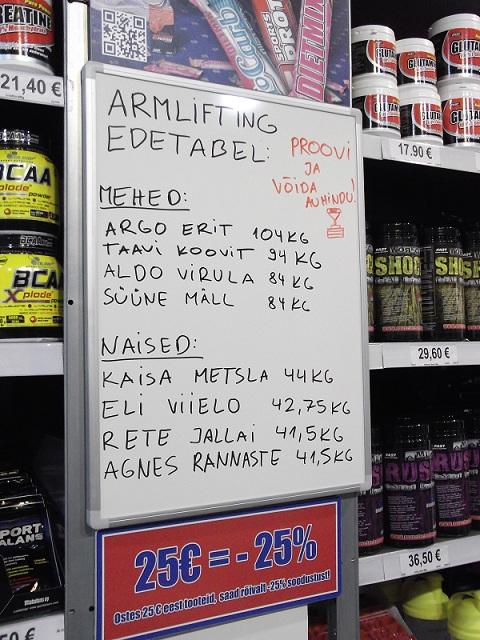 CREATINE
21,40 €
BCAA
Xplode
powder
BCAA
Xplode
powder
SPORT
DIETMIX
GLUTA
GLUTA
17.90 €
SHOC
SH
29,60 €
RUS
RUS
36,50 €
ARMLIFTING
EDETABEL:
PROOVI
JA
VÕIDA
AUHINDU!
MEHED:
ARGO ERIT 104KG
TAAVI KOOVIT 94 KG
ALDO VIRULA 84 KG
SÜÜNE MÄLL 84KG
NAISED:
KAISA METSLA 44KG
ELI VIIELO 42,75KG
RETE JALLAI 41,5KG
AGNES RANNASTE 41,5KG
25€ = - 25%
Ostes 25 € eest tooteid, saad rõivalt -25% soodustust!